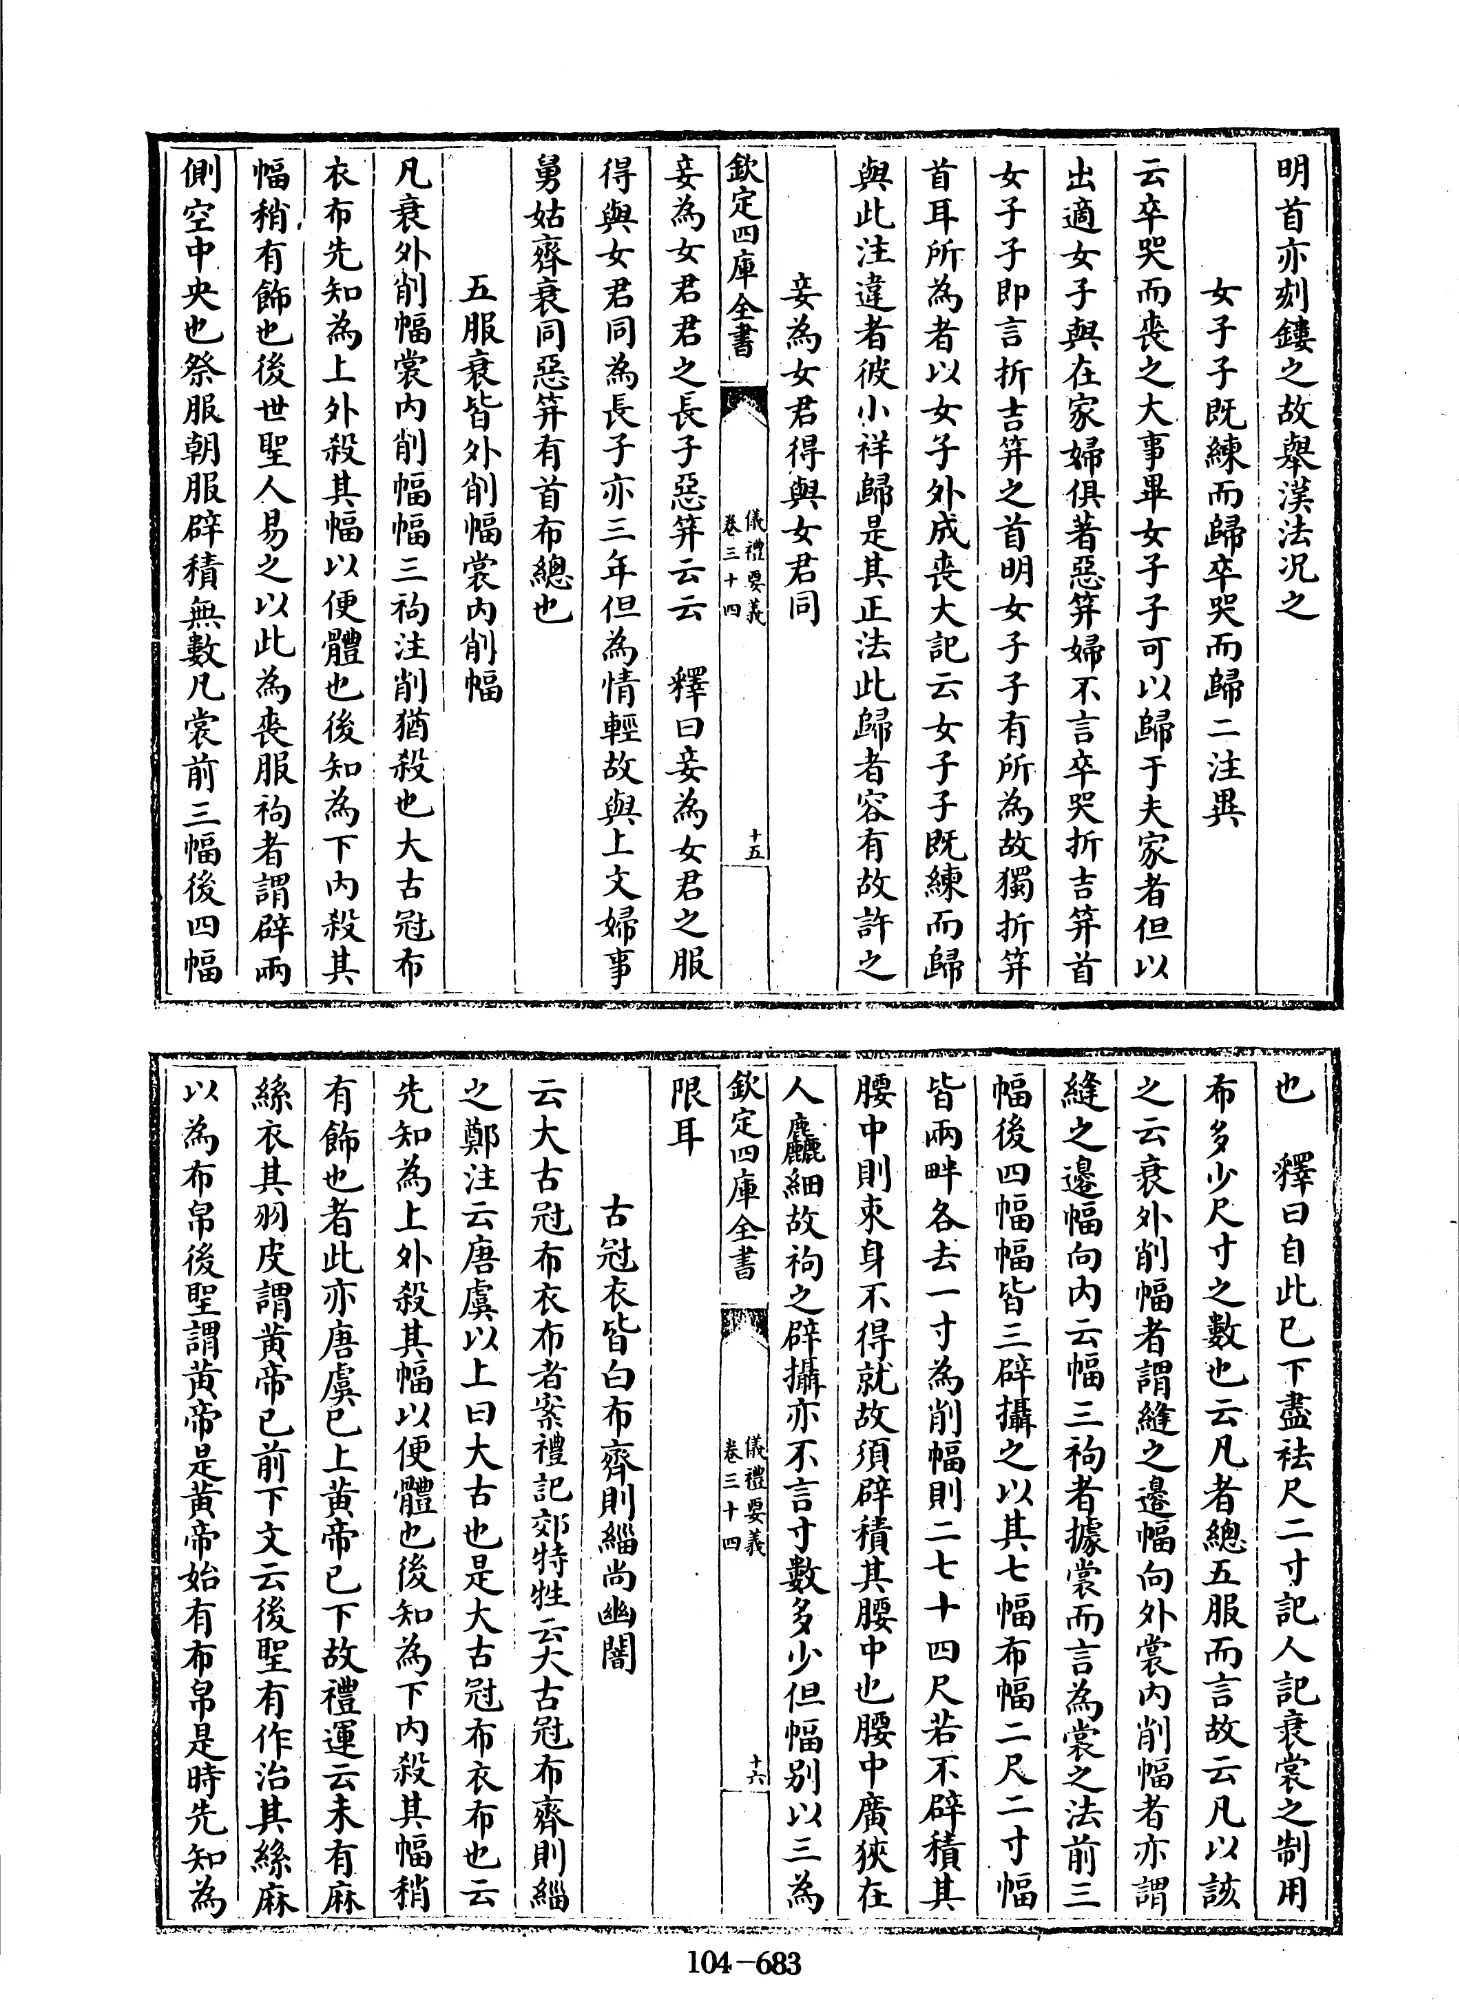 明首亦刻鏤之故舉漢法况之
女子子既練而歸卒哭而歸二注異
云卒哭而喪之大事畢女子子可以歸于夫家者但以
出適女子與在家婦俱著惡笄婦不言卒哭折吉笄首
女子子即言折吉笄之首明女子子有所為故獨折笄
首耳所為者以女子外成喪大記云女子子既練而歸
與此注違者彼小祥歸是其正法此歸者容有故許之
妾為女君得與女君同
欽定四庫全書
儀禮要義
卷三十四
十五
妾為女君君之長子惡笄云云　釋曰妾為女君之服
得與女君同為長子亦三年但為情輕故與上文婦事
舅姑齊衰同惡笄有首布總也
五服衰皆外削幅裳内削幅
凡衰外削幅裳内削幅幅三袧注削猶殺也大古冠布
衣布先知為上外殺其幅以便體也後知為下内殺其
幅稍有飾也後世聖人易之以此為喪服袧者謂辟兩
側空中央也祭服朝服辟積無數凡裳前三幅後四幅
也　釋曰自此已下盡袪尺二寸記人記衰裳之制用
布多少尺寸之數也云凡者總五服而言故云凡以該
之云衰外削幅者謂縫之邊幅向外裳内削幅者亦謂
縫之邊幅向内云幅三袧者據裳而言為裳之法前三
幅後四幅幅皆三辟攝之以其七幅布幅二尺二寸幅
皆兩畔各去一寸為削幅則二七十四尺若不辟積其
腰中則束身不得就故須辟積其腰中也腰中廣狹在
人麤細故袧之辟攝亦不言寸數多少但幅别以三為
欽定四庫全書
儀禮要義
卷三十四
十六
限耳
古冠衣皆白布齊則緇尚幽闇
云大古冠布衣布者案禮記郊特牲云大古冠布齊則緇
之鄭注云唐虞以上曰大古也是大古冠布衣布也云
先知為上外殺其幅以便體也後知為下内殺其幅稍
有飾也者此亦唐虞已上黄帝已下故禮運云未有麻
絲衣其羽皮謂黄帝已前下文云後聖有作治其絲麻
以為布帛後聖謂黄帝是黄帝始有布帛是時先知為
104-683